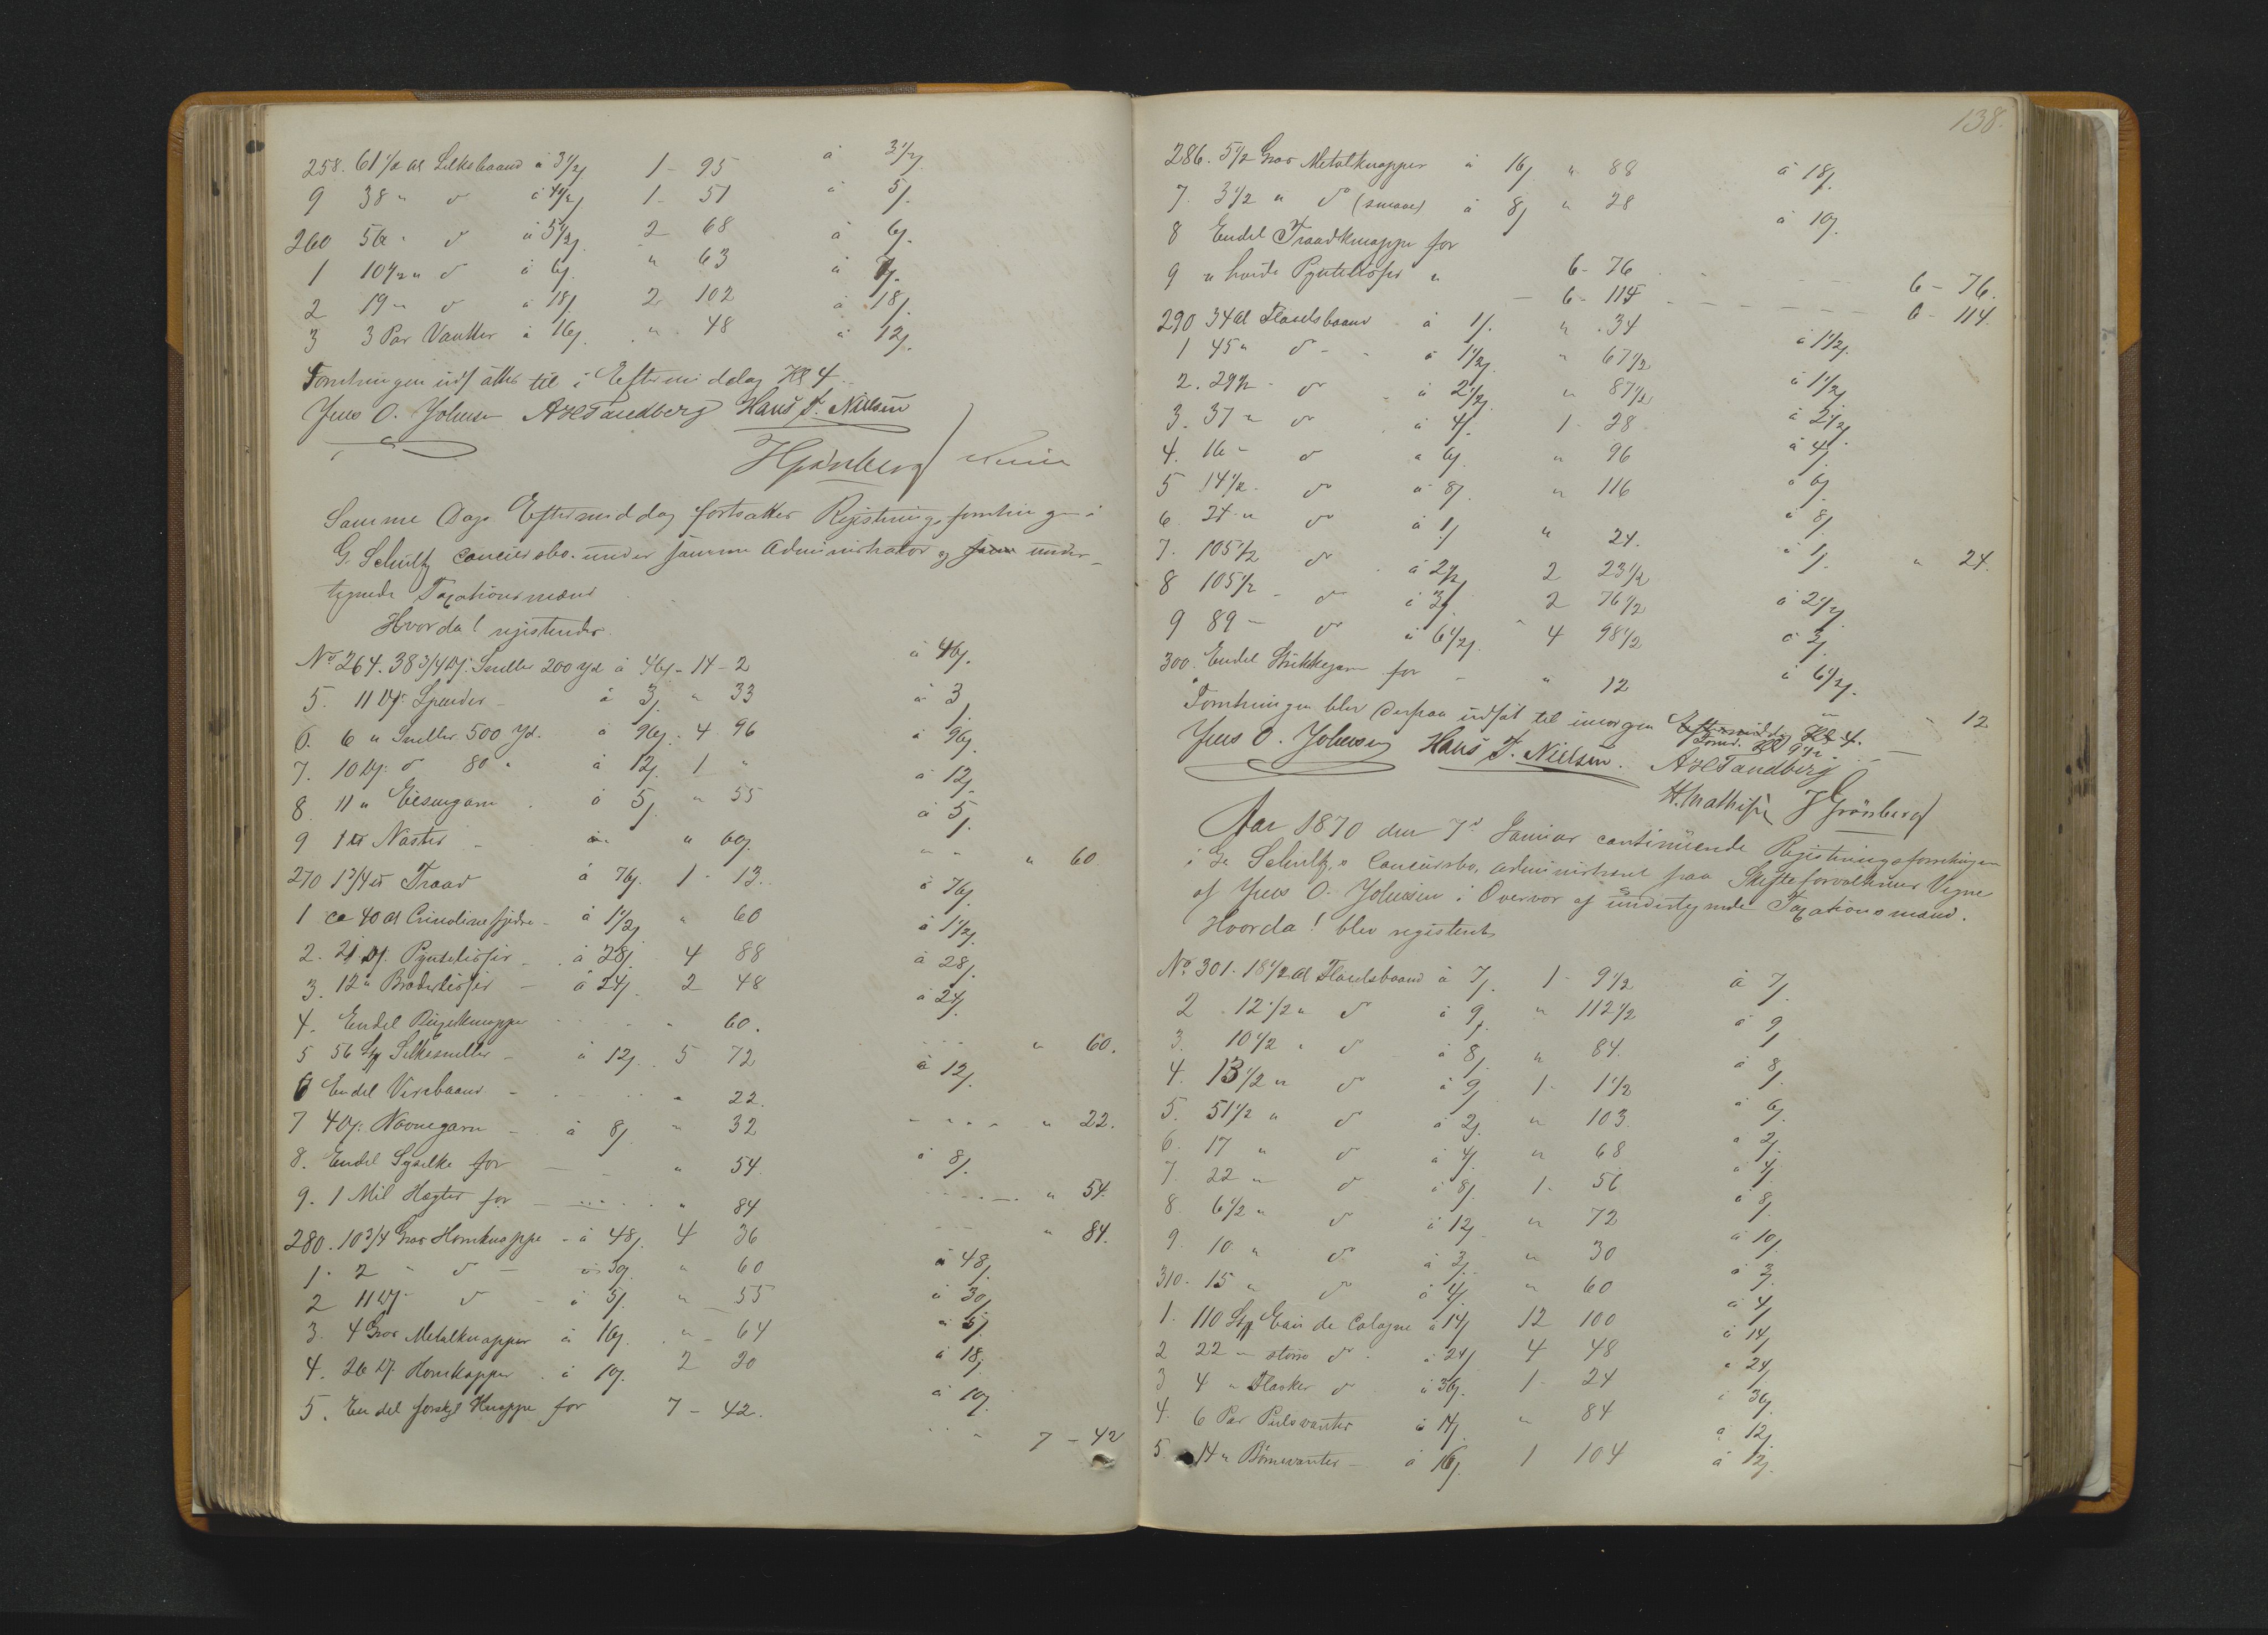 258. 61 1/2 Al Silkebaand à 3 1/2 1 - 95 à 3 1/2
9 38 " do à 4 1/2 1 - 51 à 5
260 56 " do à 5 1/2 2 68 à 6
1 10 1/2 " do à 6 " 63 à 7
2 19 " do à 18 2 102 à 18
3 3 Par Vanter à 16 " 48 à 12
Forretningen udsattes til i Eftermiddag Kl 4
Jens O. Johnsen AHSandberg Hans T. Nielsen
HGrønberg
Samme Dags Eftermiddag fortsattes Registreringsforretningen i
G. Schultz concursbo under samme Administrator og under-
tegnede Taxationsmænd
Hvorda! registreredes.
No 264. 38 3/4 Ds: Sneller 200 Yd à 46 - 14 - 2 à 46
5. 11 Ds: Spender à 3 " 33 à 3
6. 6 " Sneller 500 Yd. à 96 4 96 à 96
7. 10 Ds: do 80 " à 12 1 " à 12
8. 11 " Eisengarn à 5 " 55 à 5
9 1 Naster " 60 " 60
270 1 3/4 Traad à 76 1 - 13 à 76
1 ca 40 Al Crinolinefjedre - à 1 1/2 " 60 à 1 1/2
2. 21 Ds: Pyntelidser à 28 4 88 à 28
3. 12 " Broderlidser - à 24 2 48 à 24
4. Endel Knappe " 60. " 60.
5 56 St Silkesneller - à 12 5 72 à 12
6 Endel baand - " 22. " 22.
7 4 Ds: Navnegarn - à 8 " 32 à 8
8. Endel Sysilke for " 54. " 54.
9. 1 Mil Hægter for " 84 " 84.
280. 10 3/4 Gros Hornknappe - à 48 4 36 à 48
1. 2 " do - à 30 " 60 à 30
2 11 Ds: do - à 5 " 55 à 5
3. 4 Gros Metalknapper à 16 " 64 à 18
4. 26 Ds: Hornknapper à 10 2 20 à 10
5. En del forskjl Knappe for 7 - 42. 7 - 42
138.
286. 5 1/2 Gros Metalknapper à 16 " 88 à 18
7. 3 1/2 " do (smaae) à 8 " 28 à 10
8 Endel Traadknappe for 6 - 76 6 - 76.
9 " hvide Pyntelidser " 6 - 114 6 - 114.
290 34 Al Fløielsbaand à 1 " 34 à 1 1/2
1 45 " do - à 1 1/2 " 67 1/2 à 1 1/2
2. 29 1/2 - do à 2 1/2 " 87 1/2 à 2 1/2
3. 37 " do à 4 1 - 28 à 4
4. 16 - do à 6 " 96 à 6
5 14 1/2 - do à 8 " 116 à 8
6. 24 " do à 1 " 24. à 1 " 24.
7. 105 1/2 do à 2 1/2 2 23 1/2 à 2 1/2
8 105 1/2 - do à 3 2 76 1/2 à 3
9 89 - do à 6 1/2 4 98 1/2 à 6 1/2
300. Endel Strikkegarn for - " 12 " 12
Forretningen blev derpaa udsat til imorgen Eftermiddag Kl 4.
Formd. Kl 9 1/2
Jens O. Johnsen Hans T. Nielsen. AHSandberg
H. Mathisen HGrønberg
Aar 1870 den 7d Januar continuende Registreringsforretningen
i G. Schultz's Concursbo, administreret paa Skifteforvalterens Vegne
af Jens O. Johnsen i Overvær af undertegnede Taxationsmænd.
Hvorda! blev registreret
No. 301. 18 1/2 Al Fløielsbaand à 7 1 - 9 1/2 à 7
2 12 1/2 " do à 9 " 112 1/2 à 9
3. 10 1/2 " do à 8 " 84. à 8
4. 13 1/2 " do à 9 1 - 1 1/2 à 6
5. 51 1/2 " do à 2 " 103. à 2
6. 17 " do à 4 " 68 à 4
7. 22 " do à 8 1 - 56 à 8
8. 6 1/2 " do à 12 " 72 à 10
9. 10 " do à 3 " 30 à 3
310. 15 " do à 4 " 60 à 4
1. 110 St Eau de Cologne à 14 12 100 à 14
2 22 " større do à 24 4 48 à 24
3 4 " Flasker do à 36 1 - 24 à 36
4. 6 Par Pulsvanter à 14 " 84 à 12
5. 14 " Børnevanter - à 16 1 104 à 12